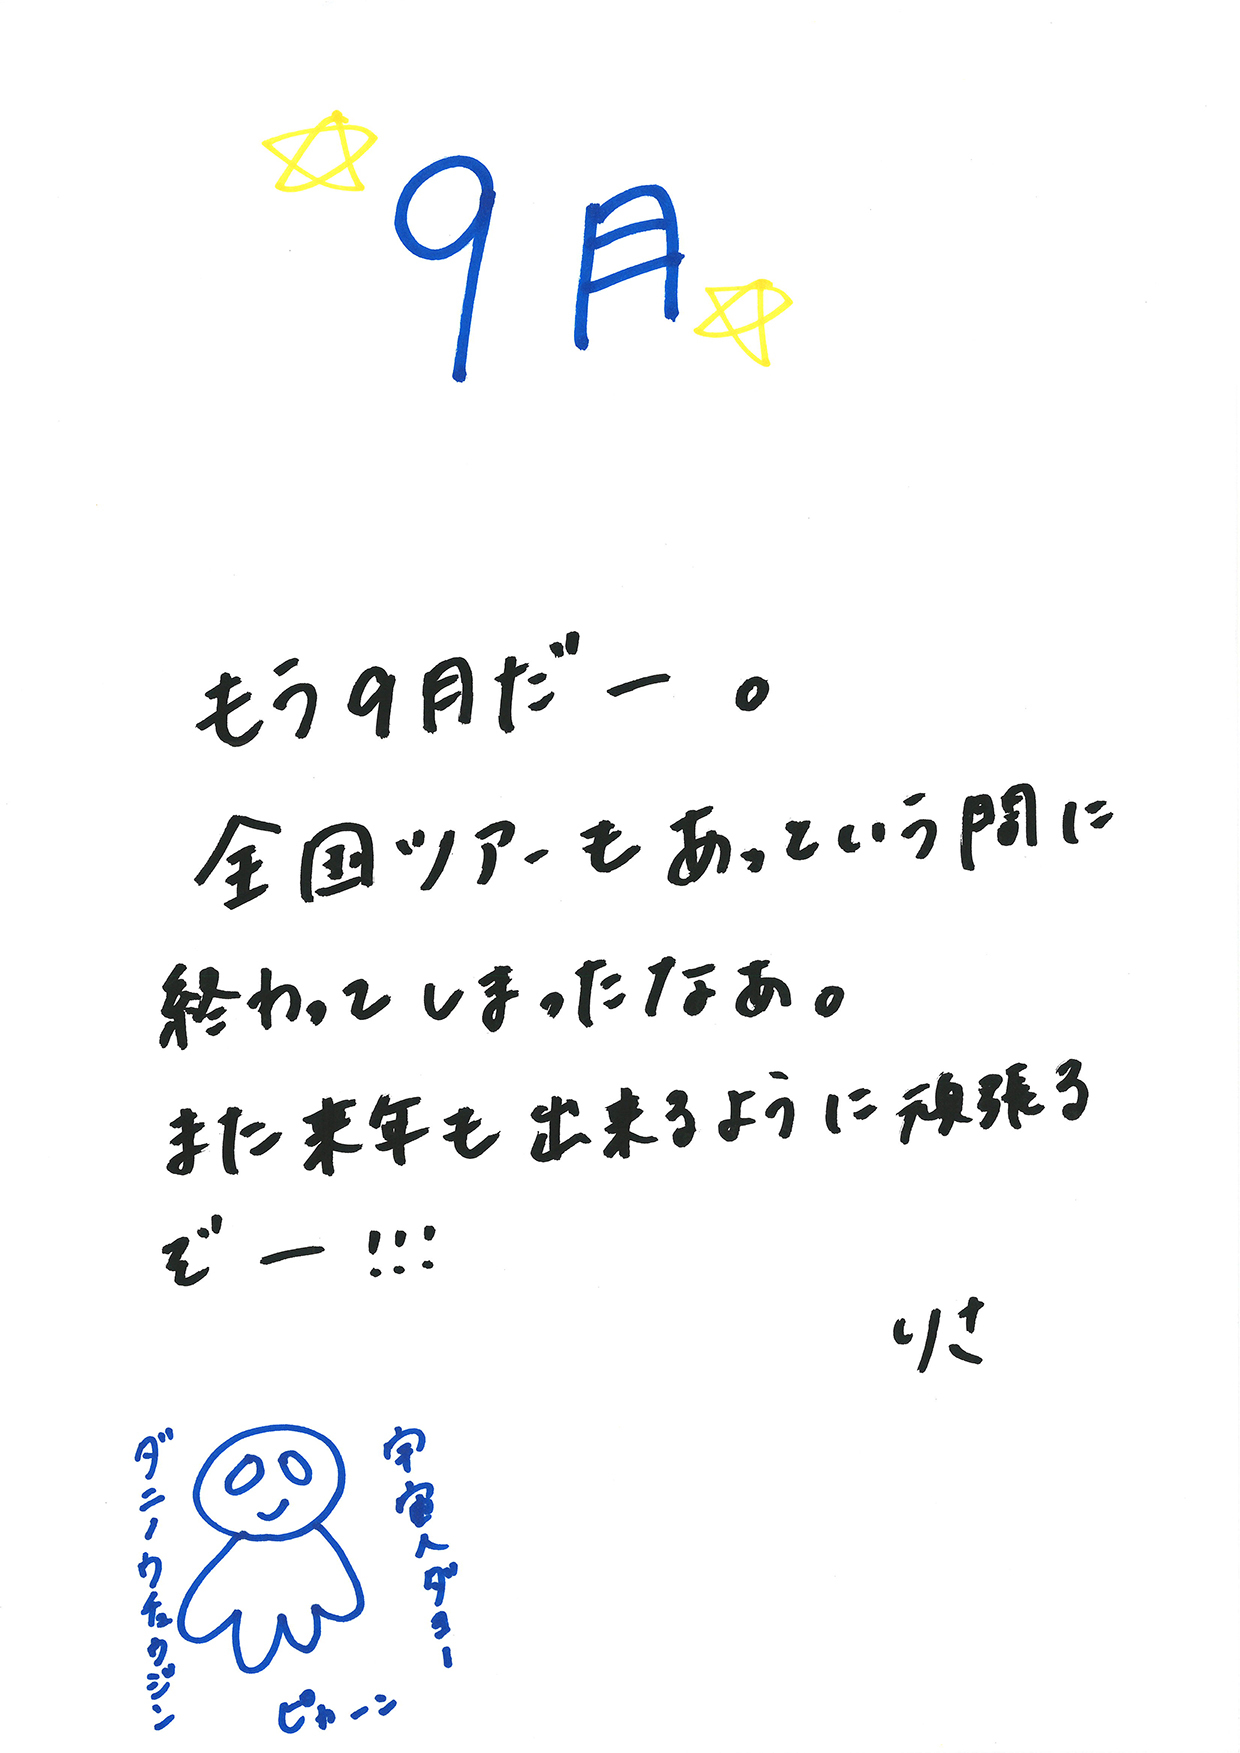 9月
もう9月だー。
全国ツアーもあっという間に
終わってしまったなあ。
また来年も出来るように頑張る
ぞー!!!
りさ
ダニーウチュウジン
宇宙人ダヨー
ピカーン